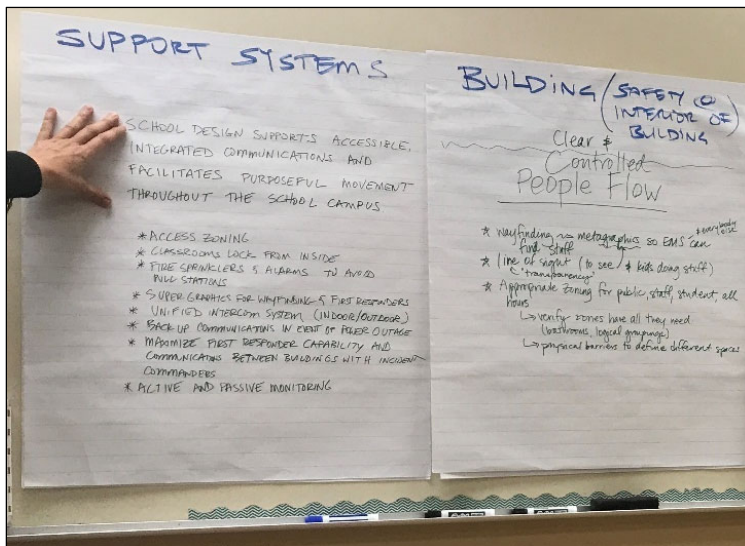 SUPPORT SYSTEMS
SCHOOL DESIGN SUPPORTS ACCESSIBLE,
INTEGRATED COMMUNICATIONS AND
FACILITATES PURPOSEFUL MOVEMENT
THROUGHOUT THE SCHOOL CAMPUS
* ACCESS ZONING
* CLASSROOMS LOCK FROM INSIDE
* FIRE SPRINKLERS & ALARMS TO AVOID
PULL STATIONS
* SUPER GRAPHICS FOR WAYFINDING & FIRST RESPONDERS
* UNIFIED INTERCOM SYSTEM (INDOOR/OUTDOOR)
* BACK UP COMMUNICATIONS IN EVENT OF POWER OUTAGE
* MAXIMIZE FIRST RESPONDER CAPABILITY AND
COMMUNICATIONS BETWEEN BUILDINGS WITH INCIDENT
COMMANDERS
* ACTIVE AND PASSIVE MONITORING
BUILDING / SAFETY @
INTERIOR OF
BUILDING
Clear &
Controlled
People Flow
* wayfinding ~ metagraphics so EMS can & everybody else
find staff
* line of sight (to see / & kids doing staff)
"transparency"
* Appropriate zoning for public, staff, student, all
hours
↳ verify zones have all they need
(bathrooms, logical groupings)
↳ physical barriers to define different spaces